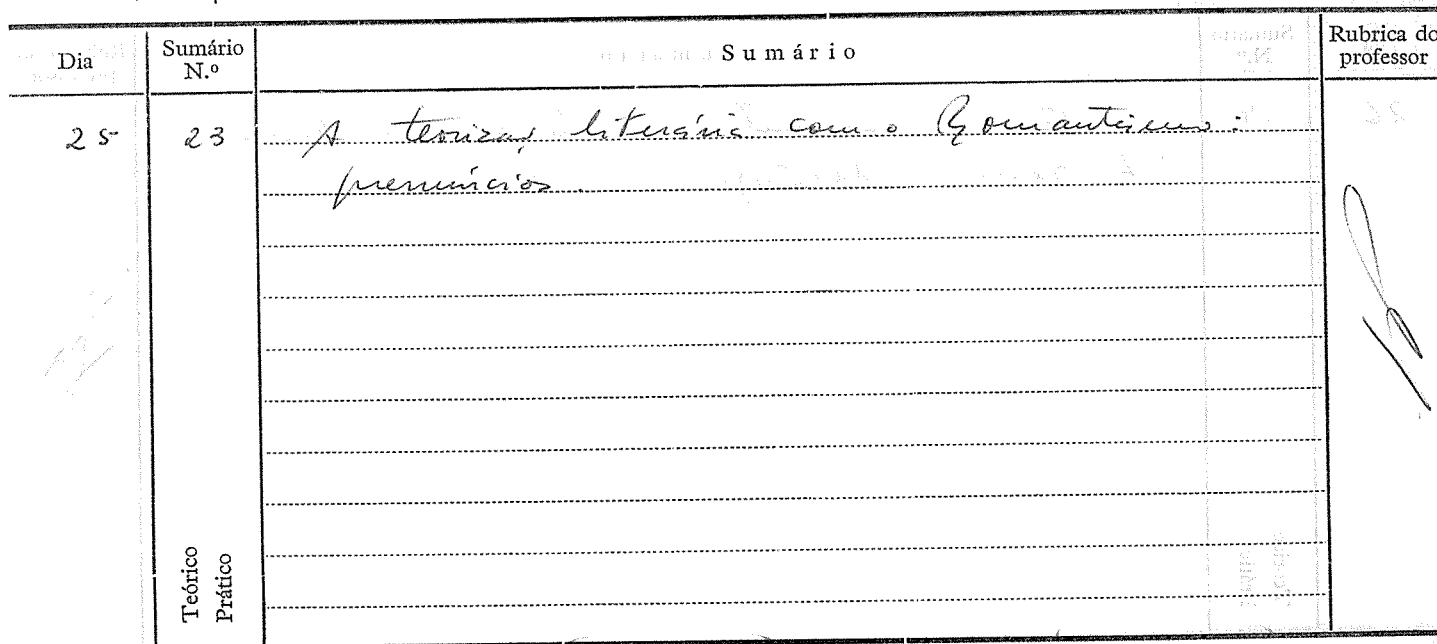 Dia Sumário N.º Sumário Rubrica do professor
25 23 A teorizaç literária com o Romantismo:
prenúncios.
Teórico
Prático